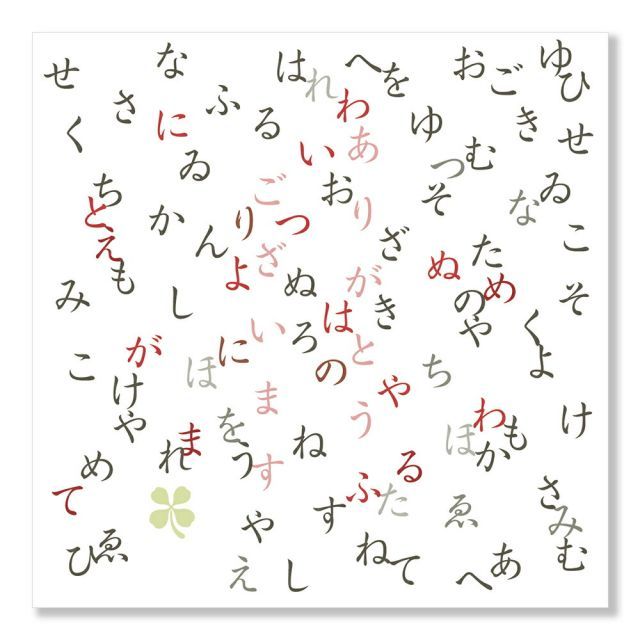 ありがとう
ございます
せ
な
は
れ
へ
を
お
ご
ゆ
ひ
さ
ふ
る
わ
ゆ
き
せ
く
に
い
つ
む
ゐ
お
そ
ゐ
な
ち
と
え
も
か
ん
り
つ
よ
ざ
た
こ
み
し
ぬ
は
き
ぬ
め
の
や
そ
く
よ
こ
が
け
や
ほ
に
ろ
の
や
ち
け
め
れ
ま
を
う
ね
わ
ほ
か
も
て
す
ふ
た
る
ゑ
さ
み
む
ひ
ゑ
や
え
し
ね
て
へ
あ